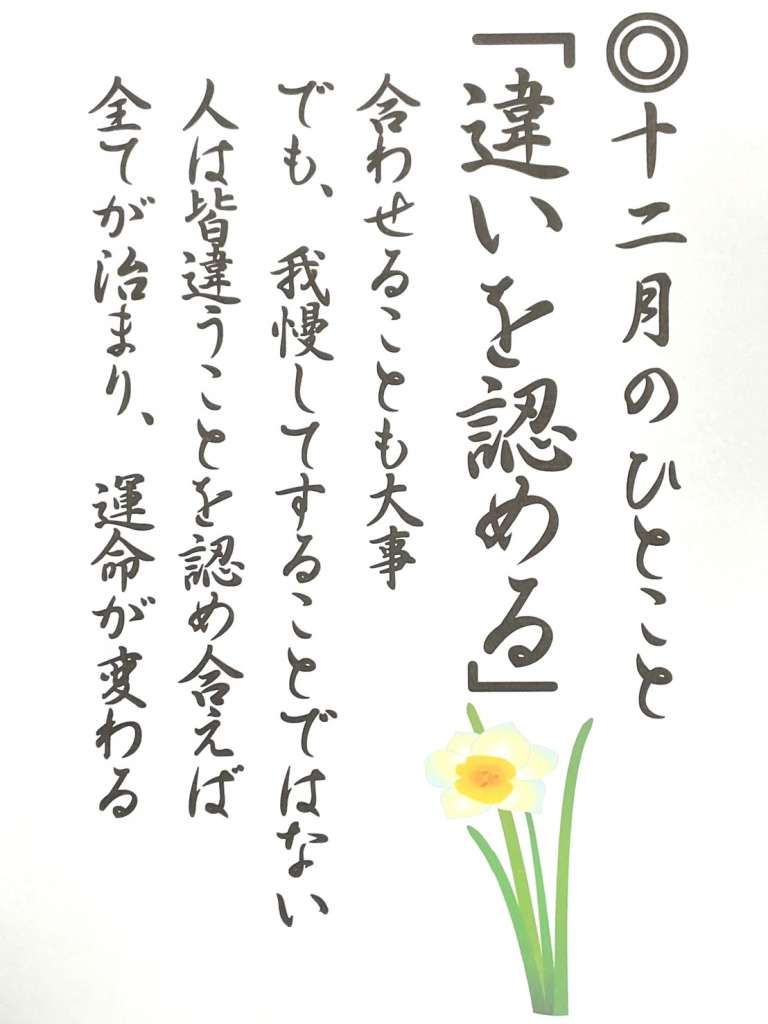 ◎十二月のひとこと
「違いを認める」
合わせることも大事
でも、我慢してすることではない
人は皆違うことを認め合えば
全てが治まり、運命が変わる